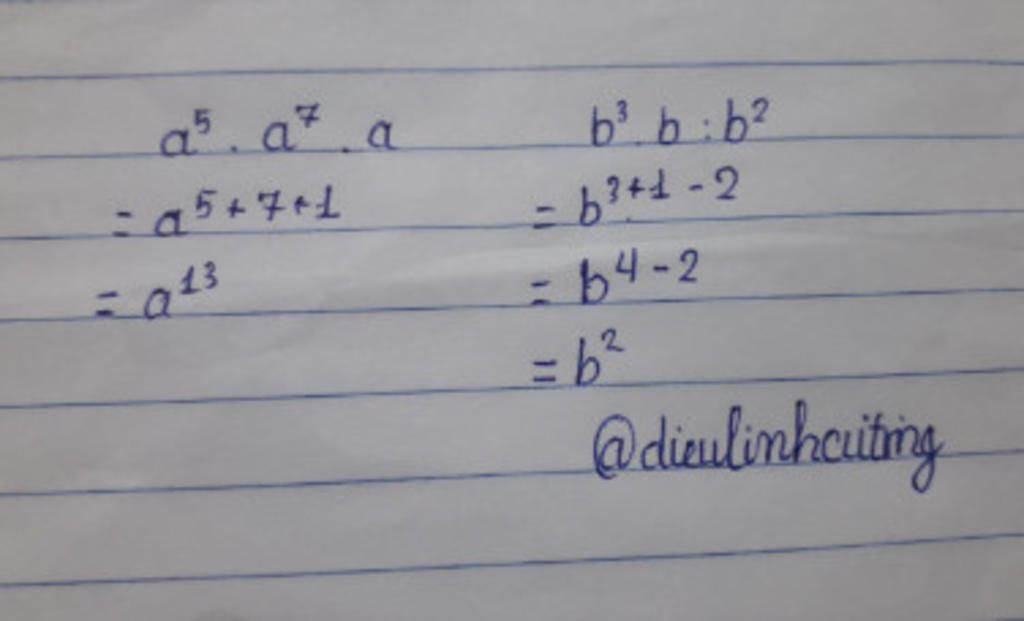 a⁵ . a⁷ . a
= a⁵⁺⁷⁺¹
= a¹³
b³ . b : b²
= b³⁺¹⁻²
= b⁴⁻²
= b²
@dieulinhcuitring